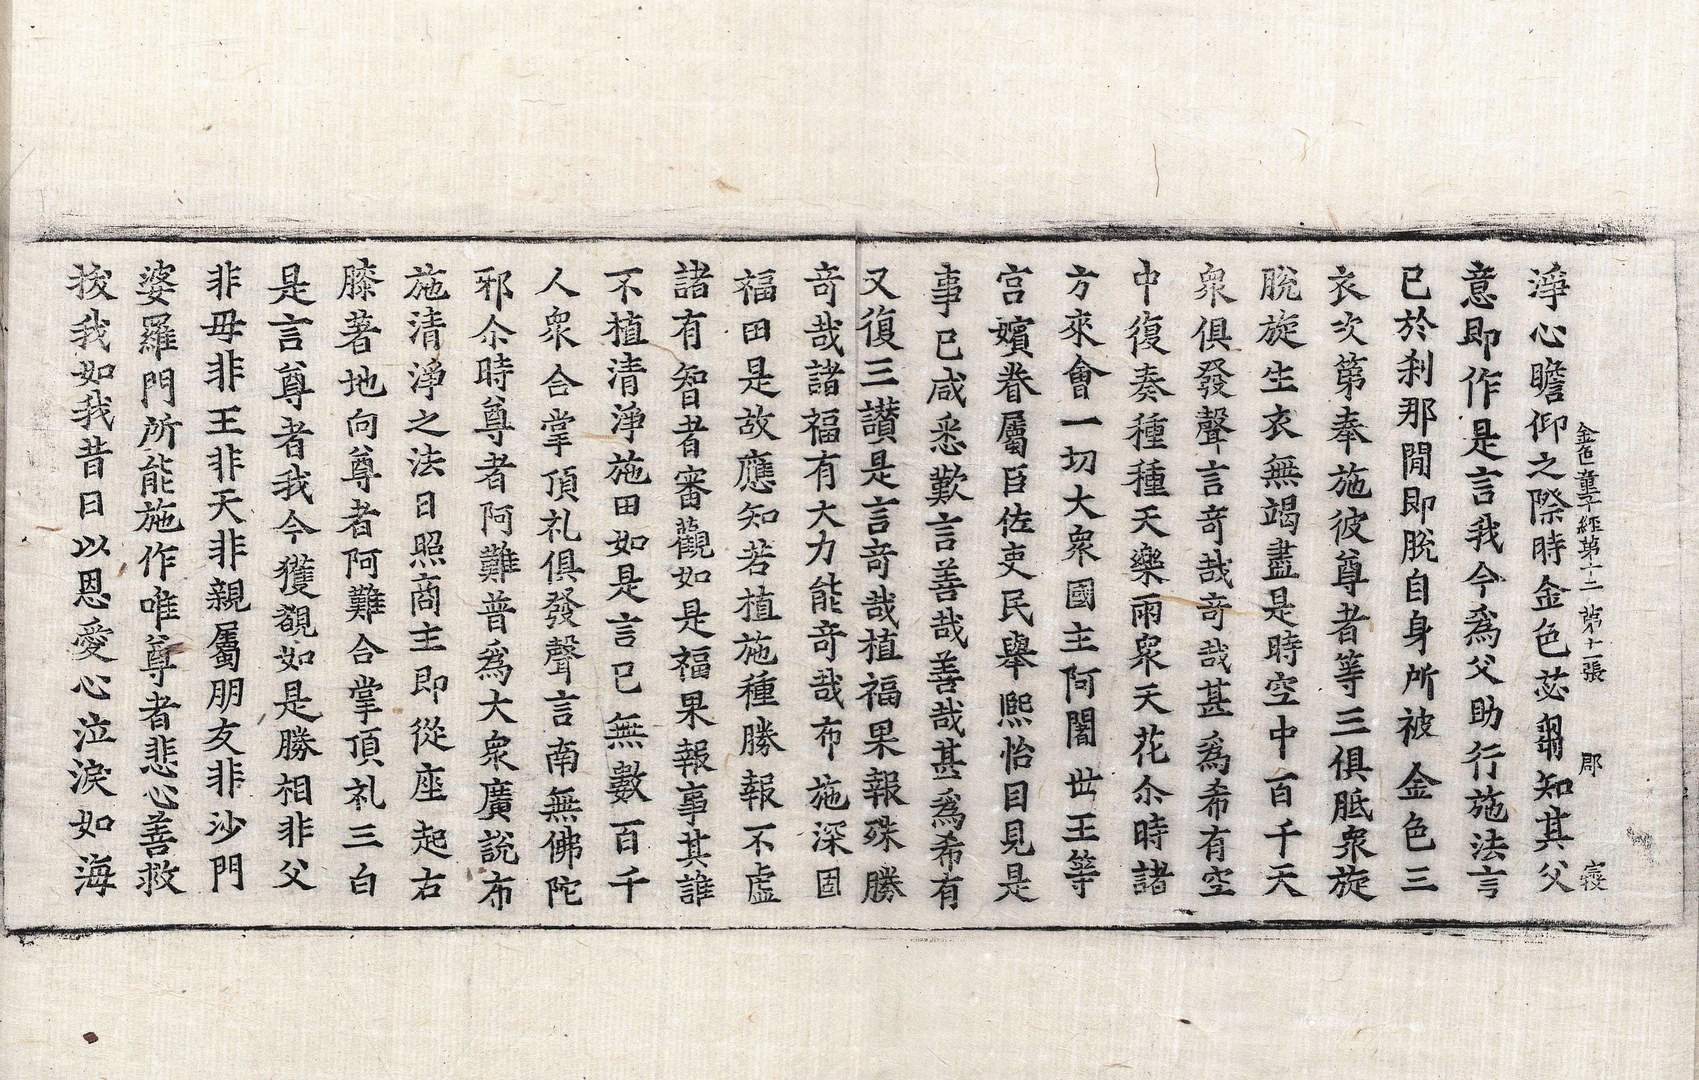 金色童子經第十二　第十一張　郡　寝
淨心瞻仰之際時金色苾芻知其父
意即作是言我今爲父助行施法言
已於剎那閒即脫自身所被金色三
衣次第奉施彼尊者等三俱胝衆旋
脫旋生衣無竭盡是時空中百千天
衆俱發聲言奇哉奇哉甚爲希有空
中復奏種種天樂雨衆天花尒時諸
方來會一切大衆國主阿闍世王等
宮嬪眷屬臣佐吏民舉熙怡目見是
事已咸悉歎言善哉善哉甚爲希有
又復三讃是言奇哉植福果報殊勝
奇哉諸福有大力能奇哉布施深固
福田是故應知若植施種勝報不虛
諸有智者審觀如是福果報事其誰
不植清淨施田如是言已無數百千
人衆合掌頂礼俱發聲言南無佛陀
邪尒時尊者阿難普爲大衆廣說布
施清淨之法日照商主即從座起右
膝著地向尊者阿難合掌頂礼三白
是言尊者我今獲覩如是勝相非父
非母非王非天非親屬朋友非沙門
婆羅門所能施作唯尊者悲心善救
拔我如我昔日以恩愛心泣淚如海